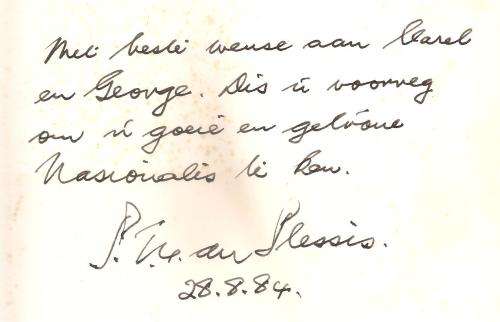 Met beste wense aan Carel
en George. Dis 'n voorreg
om 'n goeie en getroue
Nasionalis te ken.
P. T. C. du Plessis.
28.8.84.